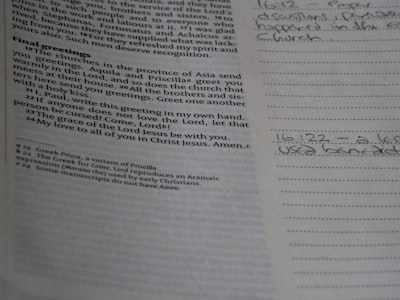 to urge you, brothers and sisters, ¹⁶to
such people and to everyone who
work, and labours at it. ¹⁷I was glad
Stephanas, Fortunatus and Achaicus ar-
have supplied what was lack-
ing from you. ¹⁸For they refreshed my spirit and
yours also. Such men deserve recognition.
Final greetings
The churches in the province of Asia send
you greetings. Aquila and Priscillaᵃ greet you
warmly in the Lord, and so does the church that
meets at their house. ²⁰All the brothers and sis-
ters here send you greetings. Greet one another
with a holy kiss.
²¹I, Paul, write this greeting in my own hand.
²²If anyone does not love the Lord, let that
person be cursed! Come, Lordᵇ!
²³The grace of the Lord Jesus be with you.
²⁴My love to all of you in Christ Jesus. Amen.ᶜ
a 19 Greek Prisca, a variant of Priscilla
b 22 The Greek for Come, Lord reproduces an Aramaic
expression (Marana tha) used by early Christians.
c 24 Some manuscripts do not have Amen.
16:12 -
happened in the
Church
16:22 - a
used